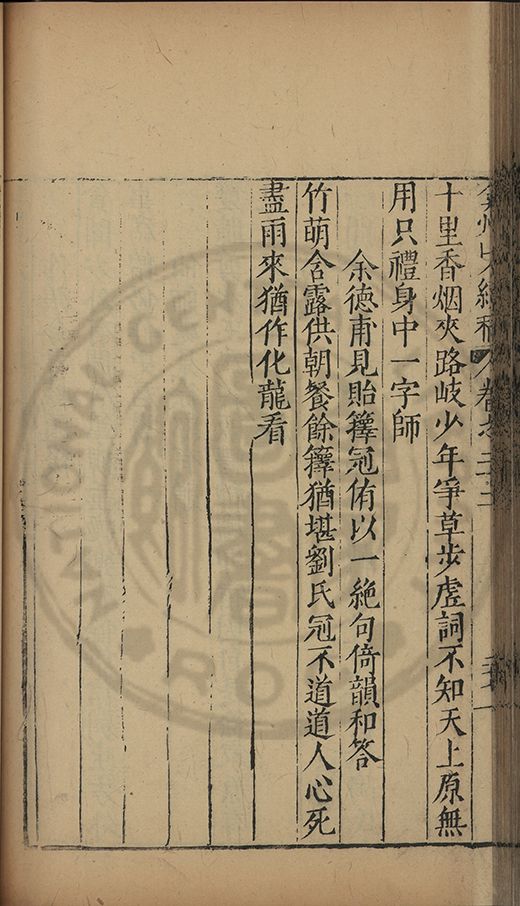 弇州山人續稿 卷之二十三
十里香烟夾路岐少年爭草步虛詞不知天上原無
用只禮身中一字師
余徳甫見貽籜冠侑以一絶句倚韻和答
竹萌含露供朝餐餘籜猶堪劉氏冠不道道人心死
盡雨來猶作化龍看